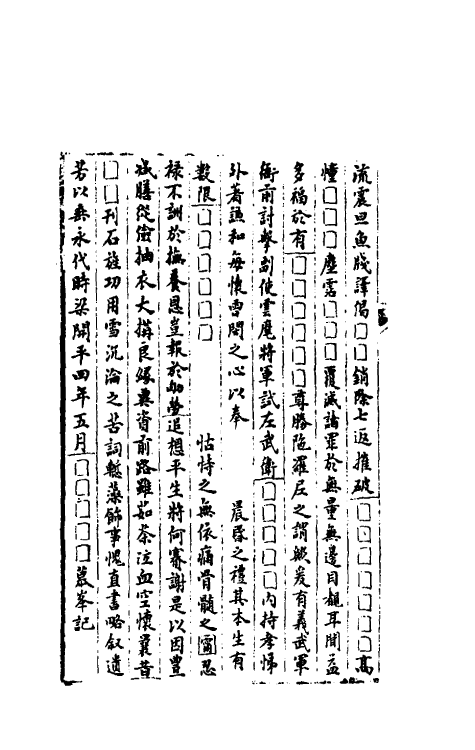 流震旦魚牋譯偈□□銷除七返摧破□□□□□□高
幢□□□塵霑□□□覆滅論罪於無量無邊目覩耳聞益
多福於有□□□□□□尊勝陁羅尼之謂歟爰有義武軍
衙前討擊副使雲麾將軍試左武衛□□□□□內持孝悌
外著謙和每懷曾閔之心以奉　晨昏之禮其本生有
數限□□□□□□　怙恃之無依痛骨髓之
祿不詶於撫養恩豈報於劬勞追想平生將何賽謝是以因豐
減膳從儉抽衣大搆良緣無資前路雖如茶泣血空懷曩昔
□□刊石旌功用雪沉淪之苦詞慙藻飾事愧直書略叙遺
芳以無永代時梁開平四年五月□□□□□慕峯記